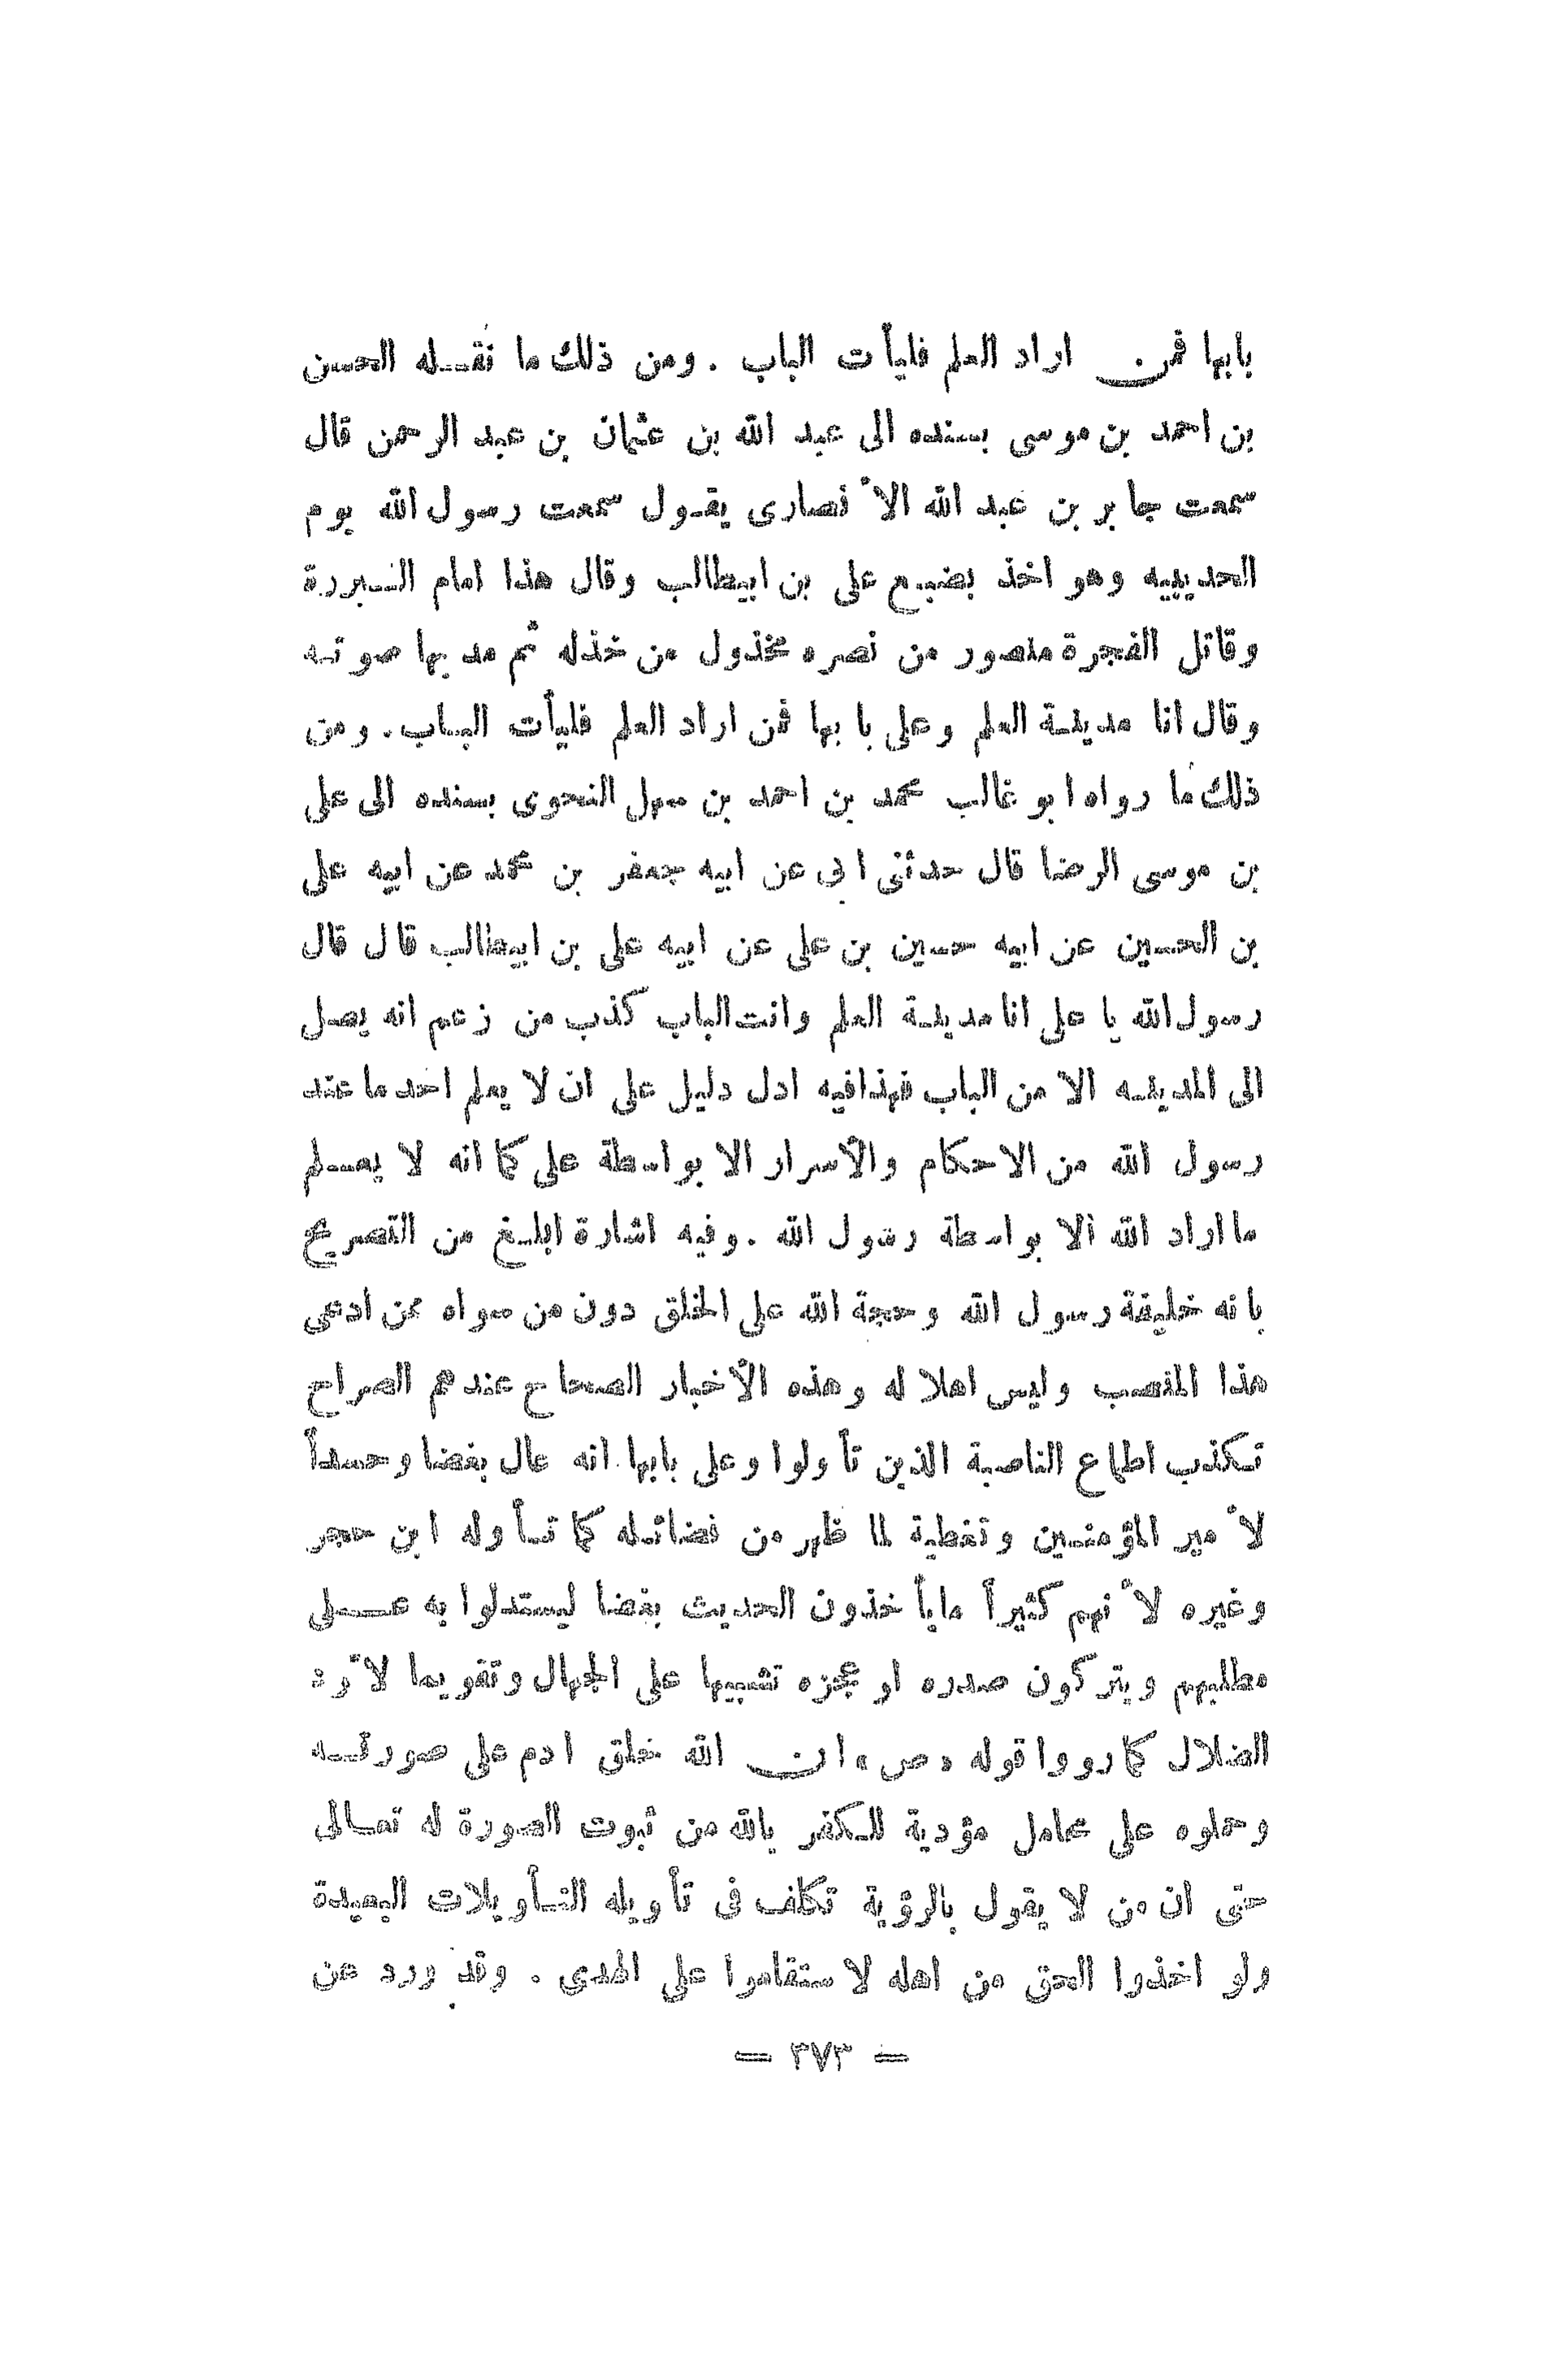 بابها فمن اراد العلم فليأت الباب . ومن ذلك ما نقله الحسن
بن احمد بن موسى بسنده الى عبد الله بن عثمان بن عبد الرحمن قال
سمعت جابر بن عبد الله الأنصارى يقول سمعت رسول الله يوم
الحديبيه وهو اخذ بضبع على بن ابيطالب وقال هذا امام البررة
وقاتل الفجرة منصور من نصره مخذول من خذله ثم مد بها صوته
وقال انا مدينة العلم وعلى بابها فمن اراد العلم فليأت الباب . ومن
ذلك ما رواه ابو غالب محمد بن احمد بن سهل النحوى بسنده الى على
بن موسى الرضا قال حدثنى ابى عن ابيه جعفر بن محمد عن ابيه على
بن الحسين عن ابيه حسين بن على عن ابيه على بن ابيطالب قال قال
رسول الله يا على انا مدينة العلم وانت الباب كذب من زعم انه يصل
الى المدينه الا من الباب فهذا فيه ادل دليل على ان لا يعلم احد ما عند
رسول الله من الاحكام والأسرار الا بواسطة على كما انه لا يعلم
ما اراد الله الا بواسطة رسول الله . وفيه اشارة ابلغ من التصريح
بانه خليفة رسول الله وحجة الله على الخلق دون من سواه ممن ادعى
هذا المنصب وليس اهلا له وهذه الأخبار الصحاح عندهم الصراح
تكذب اطماع الناصبة الذين تأولوا وعلى بابها انه عال بغضا وحسداً
لأمير المؤمنين وتغطية لما ظهر من فضائله كما تأوله ابن حجر
وغيره لأنهم كثيراً ما يأخذون الحديث بغضا ليستدلوا به على
مطلبهم ويتركون صدره او عجزه تشبيها على الجهال وتقويما لأود
الضلال كما رووا قوله «ص» ان الله خلق ادم على صورته
وحملوه على محامل مؤدية للكفر بالله من ثبوت الصورة له تعالى
حتى ان من لا يقول بالرؤية تكلف فى تأويله التأويلات البعيدة
ولو اخذوا الحق من اهله لاستقاموا على الهدى . وقد ورد عن
— ٣٧٣ —